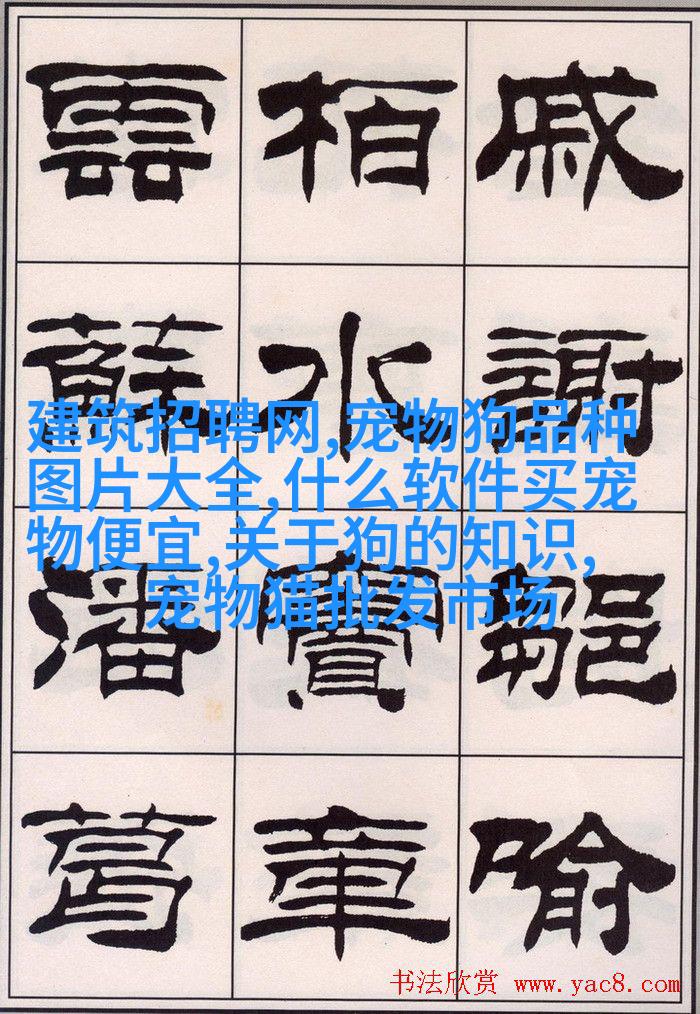 戚謝鄒喻
柏水竇章
雲蘇潘葛
建筑招聘网,宠物狗品种
图片大全,什么软件买宠
物便宜,关于狗的知识,
宠物猫批发市场
书法欣赏 www.yac8.com